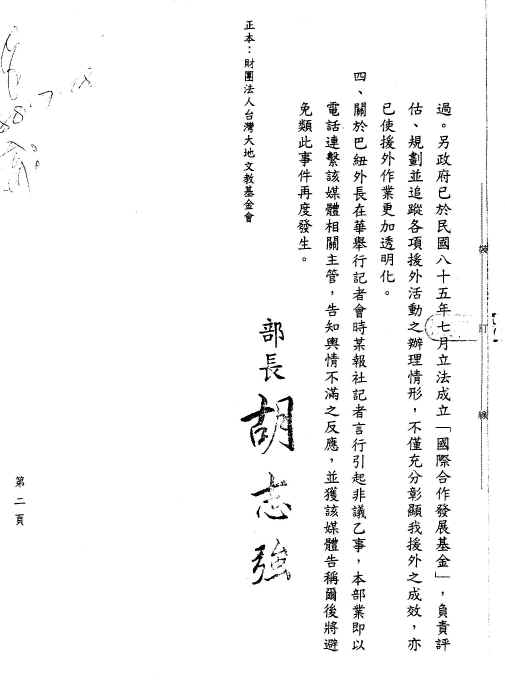 過。另政府已於民國八十五年七月立法成立「國際合作發展基金」，負責評
估、規劃並追蹤各項援外活動之辦理情形，不僅充分彰顯我援外之成效，亦
已使援外作業更加透明化。
四、關於巴紐外長在華舉行記者會時某報社記者言行引起非議乙事，本部業即以
電話連繫該媒體相關主管，告知輿情不滿之反應，並獲該媒體告稱爾後將避
免類此事件再度發生。
正本：財團法人台灣大地文教基金會
部長 胡志強
第二頁
裝
訂
線